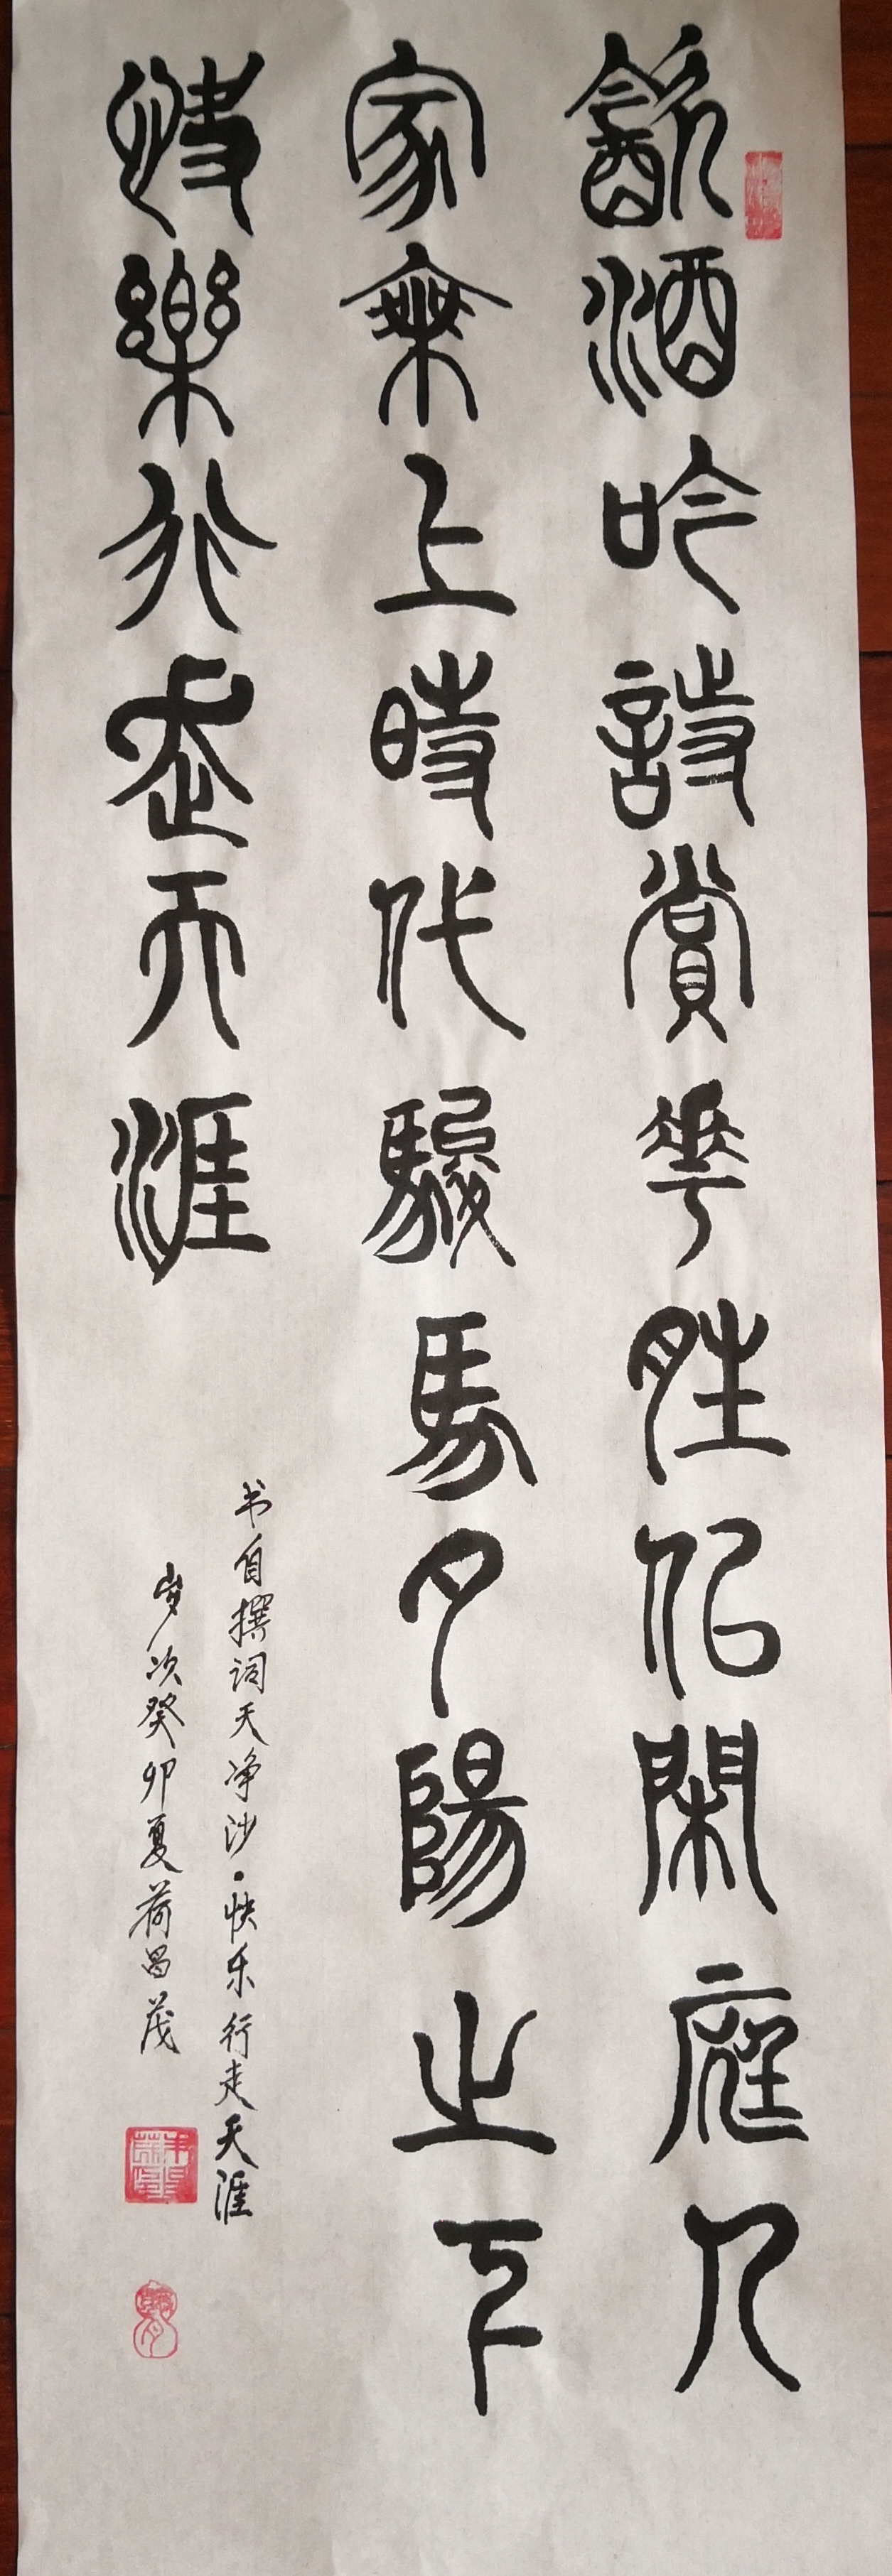 飲酒吟詩賞華胜似閑庭人
家乘上時代駿馬夕陽之下
快樂行走天涯
书自撰词天净沙·快乐行走天涯
岁次癸卯夏荷昌茂